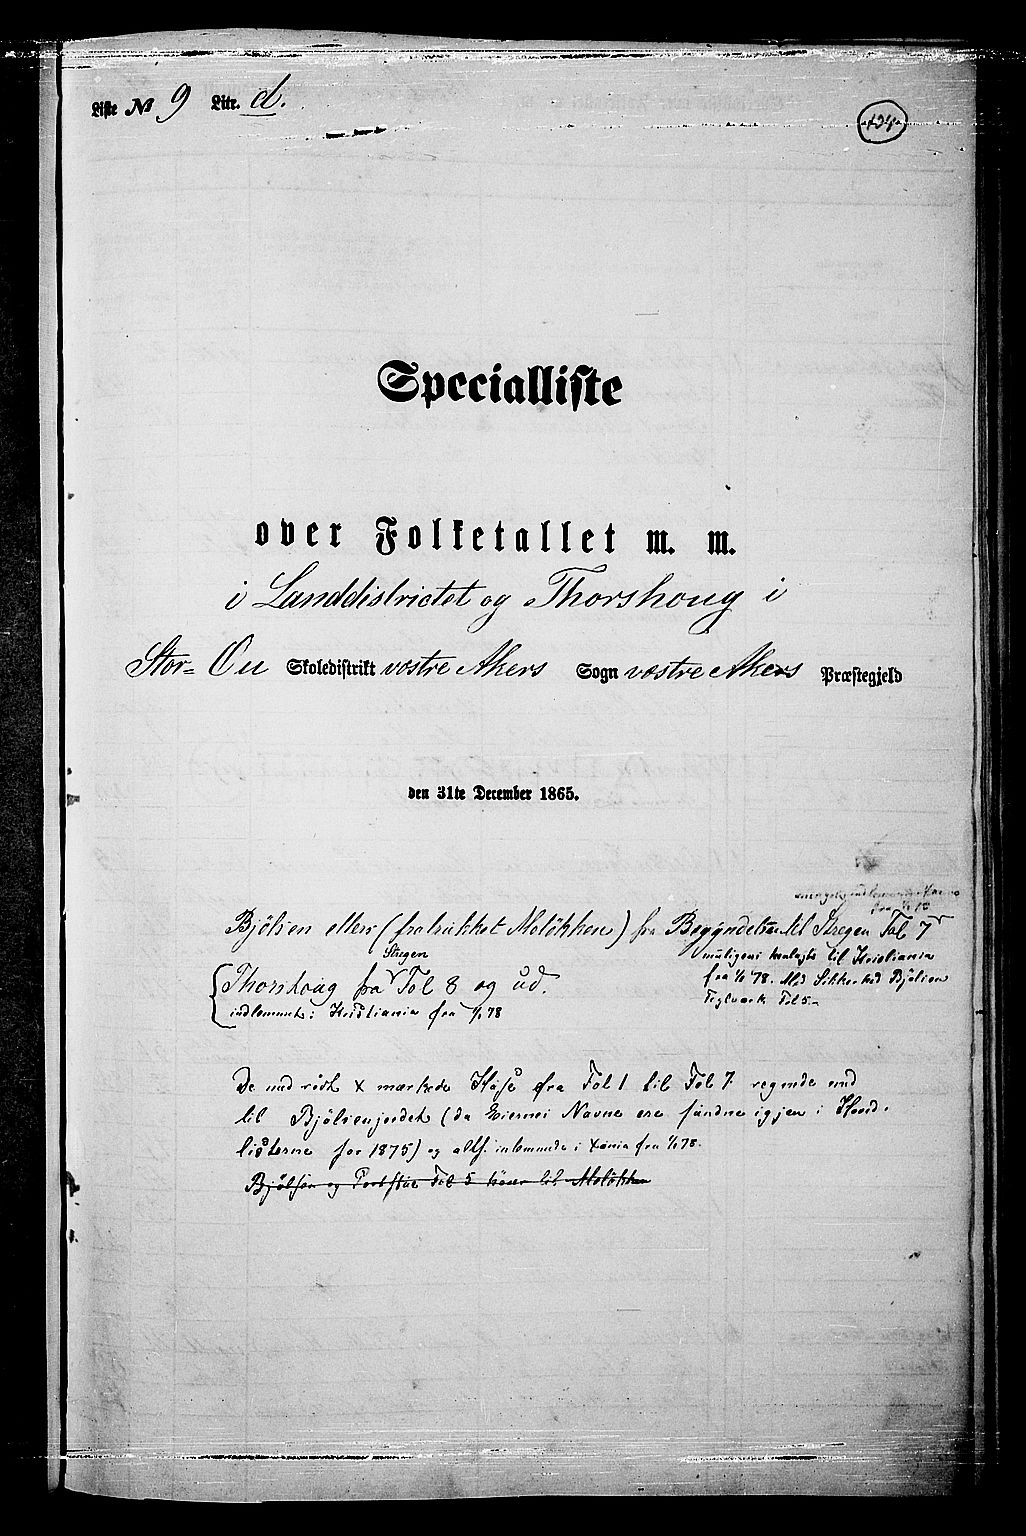 Liste No 9 Litr. d.
134
Specialliste
over Folketallet m. m.
i Landdistrictet og Thorshoug i
Stor- Ou Skoledistrikt vestre Akers Sogn vestre Akers Præstegjeld
den 31te December 1865.
fra 1/1 78
Bjölsen ellers (fratrukket Molökken) fra Begyndelsen til Stregen Fol 7
muligens henlagte til Kristiania
Stregen
fra 1/1 78. Med Sikkerhed Bjölsen
Thorshoug fra Fol 8 og ud.
Teglværk Fol 5
indlemmet i Kristiania fra 1/1 78
De med rödt x mærkede Huse fra Fol 1 til Fol 7 regnede med
til Bjölsenjordet (da Eiernes Navne ere fundne igjen i Hoved.
listerne for 1875) og alts. inlemmede i Xania fra 1/1 78.
Bjölsen og Fol 5 hörer til Molökken